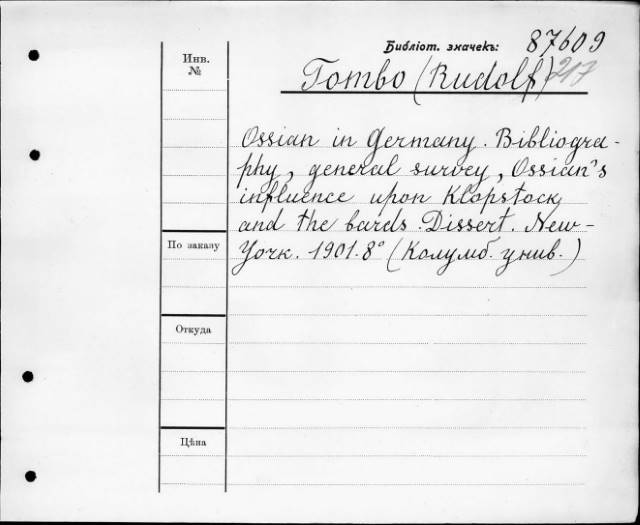 Библіот. значекъ: 87609
Инв.
№
Tombo (Rudolf) 217
Ossian in Germany. Bibliogra-
phy, general survey, Ossian's
influence upon Klopstock
and the bards. Dissert. New-
Yorк. 1901. 8° (Колумб. унив.)
По заказу
Откуда
Цѣна